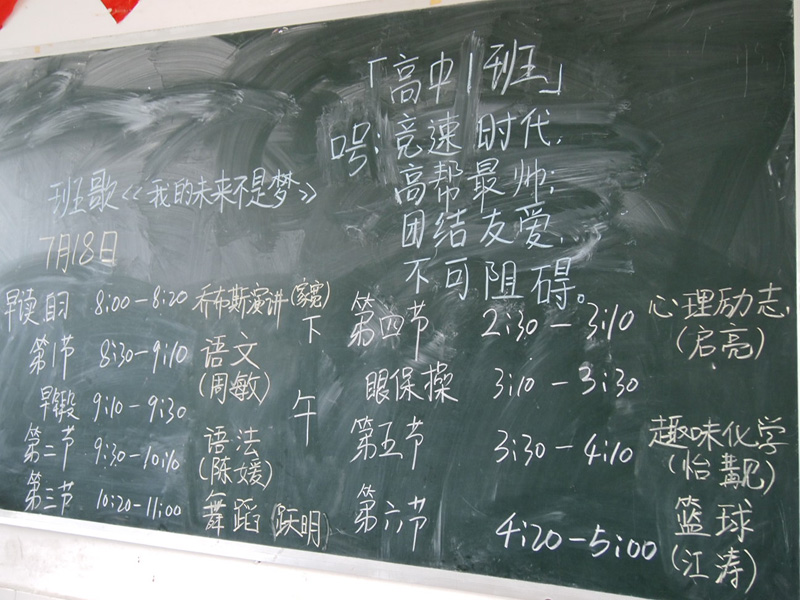 「高中1班」
口号:竞速时代,
高帮最帅;
团结友爱,
不可阻碍。
班歌《我的未来不是梦》
7月18日
早读 8:00-8:20 乔布斯演讲(家宽)
第1节 8:30-9:10 语文
(周敏)
早锻 9:10-9:30
第二节 9:30-10:10 语法
(陈媛)
第三节 10:20-11:00 舞蹈(跃明)
下午
第四节 2:30-3:10 心理励志
(启亮)
眼保操 3:10-3:30
第五节 3:30-4:10 趣味化学
(怡靓)
第六节 4:20-5:00 篮球
(江涛)